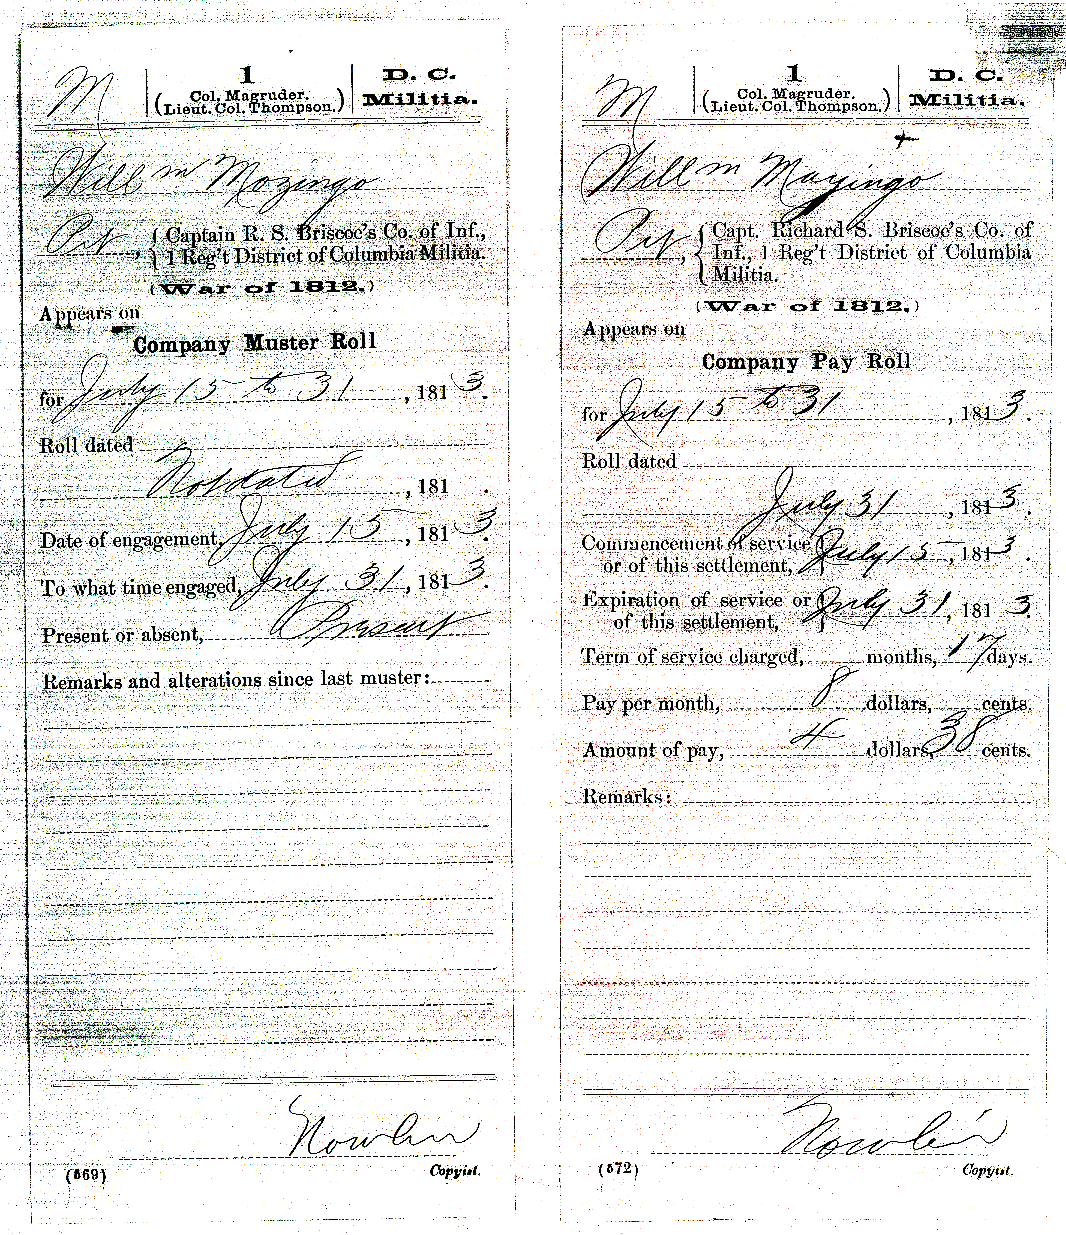 M
1
(Col. Magruder.
Lieut. Col. Thompson.)
D. C.
Militia.
Will m Mozingo
Pvt, { Captain R. S. Briscoe's Co. of Inf.,
1 Reg't District of Columbia Militia.
(War of 1812.)
Appears on
Company Muster Roll
for July 15 to 31, 1813.
Roll dated
Not dated, 181 .
Date of engagement, July 15, 1813.
To what time engaged, July 31, 1813.
Present or absent, Present
Remarks and alterations since last muster:
Nowlin
(569) Copyist.
M
1
(Col. Magruder.
Lieut. Col. Thompson.)
D. C.
Militia.
+
Will m Mayingo
Pvt, { Capt. Richard S. Briscoe's Co. of
Inf., 1 Reg't District of Columbia
Militia.
(War of 1812.)
Appears on
Company Pay Roll
for July 15 to 31, 1813.
Roll dated
July 31, 1813.
Commencement of service
or of this settlement, } July 15, 1813.
Expiration of service or
of this settlement, } July 31, 1813.
Term of service charged, months, 17 days.
Pay per month, 8 dollars, cents.
Amount of pay, 4 dollars, 38 cents.
Remarks:
Nowlin
(572) Copyist.